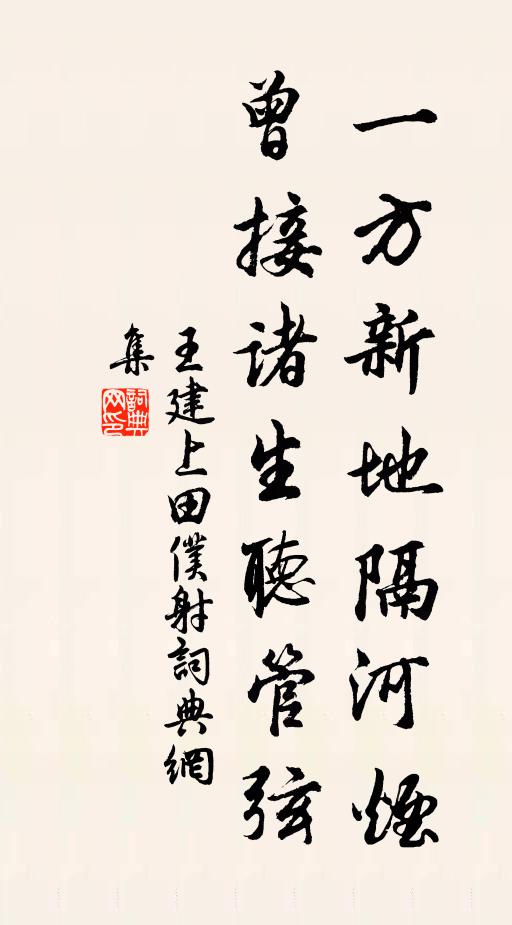 一方新地隔河煙
曾接諸生聽管弦
王建上田僕射詞典網
集
詞典网印